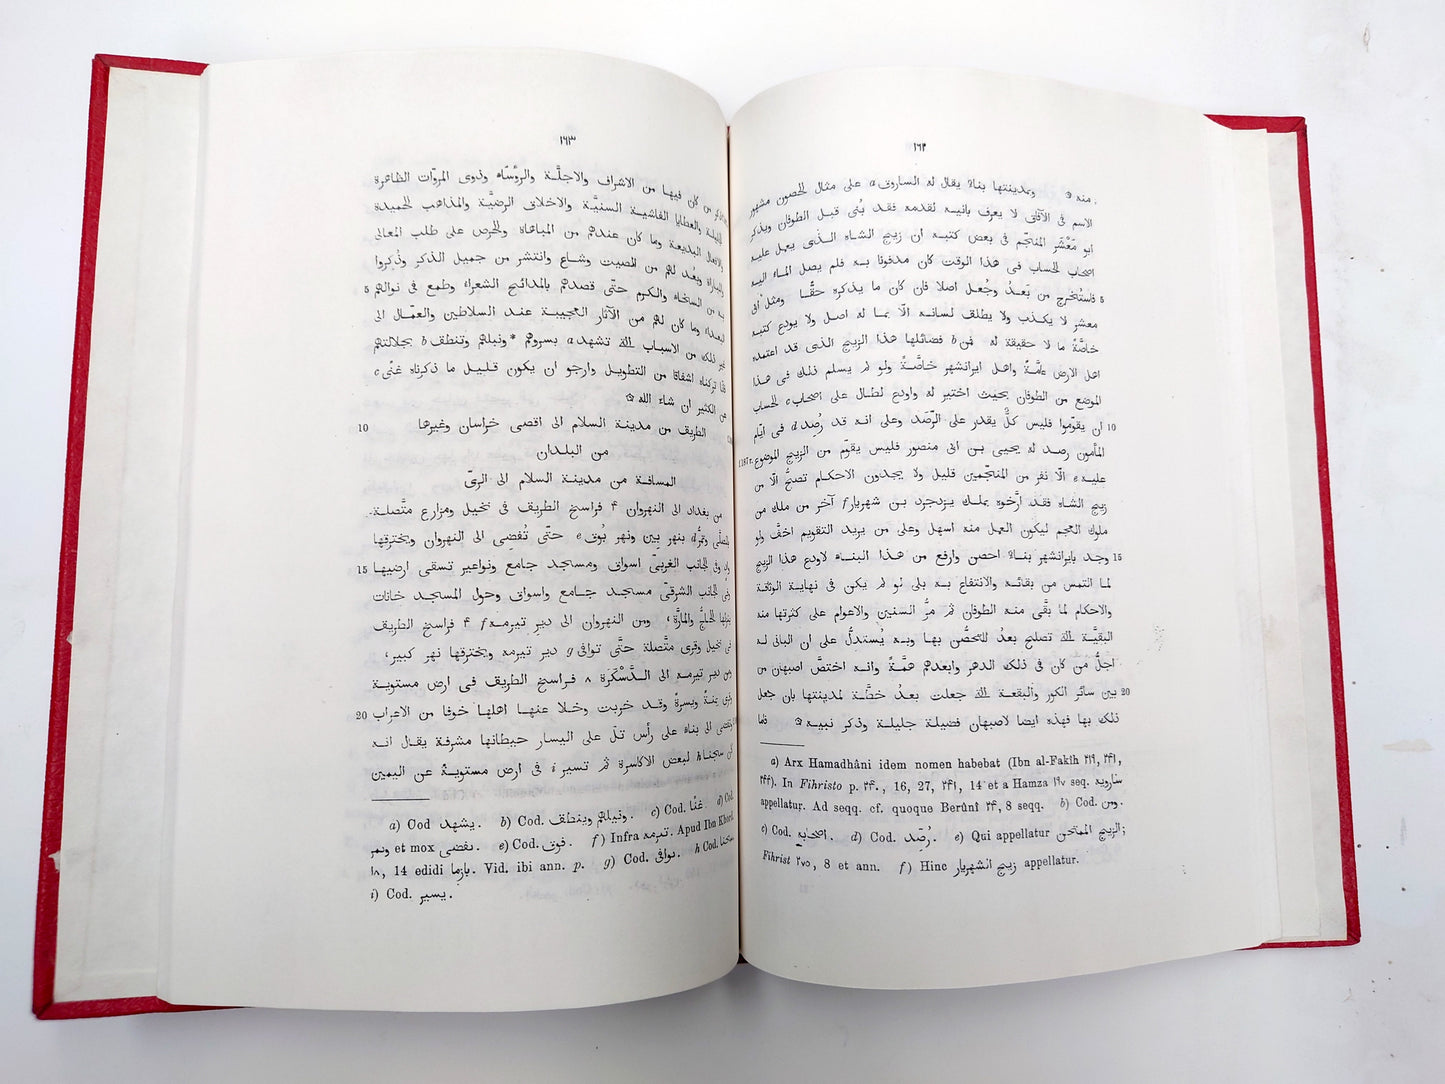 ١٦٢
منه ۞ وبمدينتها بناء يقال له الساروق a على مثال الحصون مشهور
الاسم فى الآفاق لا يعرف بانيه لقدمه فقد بُنى قبل الطوفان ويذكر
ابو مَعْشَر المنجّم فى بعض كتبه ان زيج الشاه الذى يعمل عليه
اصحاب الحساب فى هذا الوقت كان مدفونا به فلم يصل الماء اليه
5 فاستُخرج من بَعدُ وجُعل اصلا فان كان ما يذكره حقًّا ومثل أبى
معشر لا يكذب ولا يطلق لسانه الّا بما له اصل ولا يودع كتبه
خاصّةً ما لا حقيقة له فمن b فضائلها هذا الزيج الذى قد اعتمده
اهل الارض عامّةً واهل ايرانشهر خاصّةً ولو لم يسلم ذلك فى هذا
الموضع من الطوفان بحيث اختير له واودع لطال على اصحاب c الحساب
10 أن يقوموا فليس كلٌّ يقدر على الرَّصَد وعلى انه قد رُصِد d فى ايّام
المأمون رصد له يحيى بن ابى منصور فليس يقوّم من الزيج الموضوع
197 r.
عليه e الّا نفر من المنجّمين قليل ولا يجدون الاحكام تصحّ الّا من
زيج الشاه فقد ارّخوه بملك يزدجرد بن شهريار f آخر من ملك من
ملوك العجم ليكون العمل منه اسهل وعلى من يريد التقويم اخفّ ولو
15 وجد بايرانشهر بناء احصن وارفع من هذا البناء لاودع هذا الزيج
لما التمس من بقائه والانتفاع به بلى نو لم يكن فى نهاية الوثاقة
والاحكام لما بقّى منه الطوفان ثم مرُّ السنين والاعوام على كثرتها منه
البقيّة الّتى تصلح بعدُ للتحصّن بها وبه يُستدلّ على ان البانى له
اجلُّ من كان فى ذلك الدهر وابعدهم همّةً وانه اختصّ اصبهان من
20 بين سائر الكور والبقعة الّتى جعلت بعدُ خطّة لمدينتها بان جعل
ذلك بها فهذه ايضا لاصبهان فضيلة جليلة وذكر نبيه ۞ فاما
a) Arx Hamadhâni idem nomen habebat (Ibn al-Fakîh ٢١٩, ٢۴١,
٢۴۴). In Fihristo p. ٢۴٠, 16, 27, ٢۴١, 14 et a Hamza ١٩٧ seq. سارويه
appellatur. Ad seqq. cf. quoque Berûnî ٢۴, 8 seqq. b) Cod. ومن.
c) Cod. اصحابه. d) Cod. رُصِّد. e) Qui appellatur الزيج الممتحن;
Fihrist ٢٧٥, 8 et ann. f) Hinc زيج الشهريار appellatur.
١٦٣
من كان فيها من الاشراف والاجلّة والرؤساء وذوى المروّات الظاهرة
الجليلة والعطايا الفاشية السنيّة والاخلاق الرضيّة والمذاهب الحميدة
والافعال البديعة وما كان عندهم من المباهاة والحرص على طلب المعالى
والمباراة وبعُد لهم من الصيت وشاع وانتشر من جميل الذكر وذُكروا
5 به من السخاء والكرم حتّى قصدهم بالمدائح الشعراء وطمع فى نوالهم
البعداء وما كان لهم من الآثار العجيبة عند السلاطين والعمّال الى
غير ذلك من الاسباب الّتى تشهد a بسروهم * ونبلهم وتنطق b بجلالتهم
فانّا تركناه اشفاقا من التطويل وارجو ان يكون قليل ما ذكرناه غنًى c
عن الكثير ان شاء الله ۞
10 الطريق من مدينة السلام الى اقصى خراسان وغيرها
من البلدان
المسافة من مدينة السلام الى الرىّ
من بغداد الى النهروان ۴ فراسخ الطريق فى نخيل ومزارع متّصلة
بالمصلّى وتمرّ d بنهر بِين ونهر بُوق e حتّى تُفضِى الى النهروان ويخترقها
15 وادٍ وفى الجانب الغربىّ اسواق ومسجد جامع ونواعير تسقى ارضيها
وفى الجانب الشرقىّ مسجد جامع واسواق وحول المسجد خانات
ينزلها الحاجّ والمارّة، ومن النهروان الى دير تيرمه f ۴ فراسخ الطريق
فى نخيل وقرى متّصلة حتّى توافى g دير تيرمه ويخترقها نهر كبير،
ومن دير تيرمه الى الدَّسْكَرة ٨ فراسخ الطريق فى ارض مستوية
20 وقرى يمنةً ويسرةً وقد خربت وخلا عنها اهلها خوفا من الاعراب
وتفضى الى بناء على رأس تلّ على اليسار حيطانها مشرفة يقال انه
كان سجنا h لبعض الاكاسرة ثم تسير i فى ارض مستوية عن اليمين
a) Cod يشهد. b) Cod. ونيلهم وينطق. c) Cod. غنًا. d) Cod.
ونمر et mox يفضى. e) Cod. فوق. f) Infra تبرمه. Apud Ibn Khord.
١٨, 14 edidi بازما. Vid. ibi ann. p. g) Cod. نوافى. h Cod.
i) Cod. يسير.